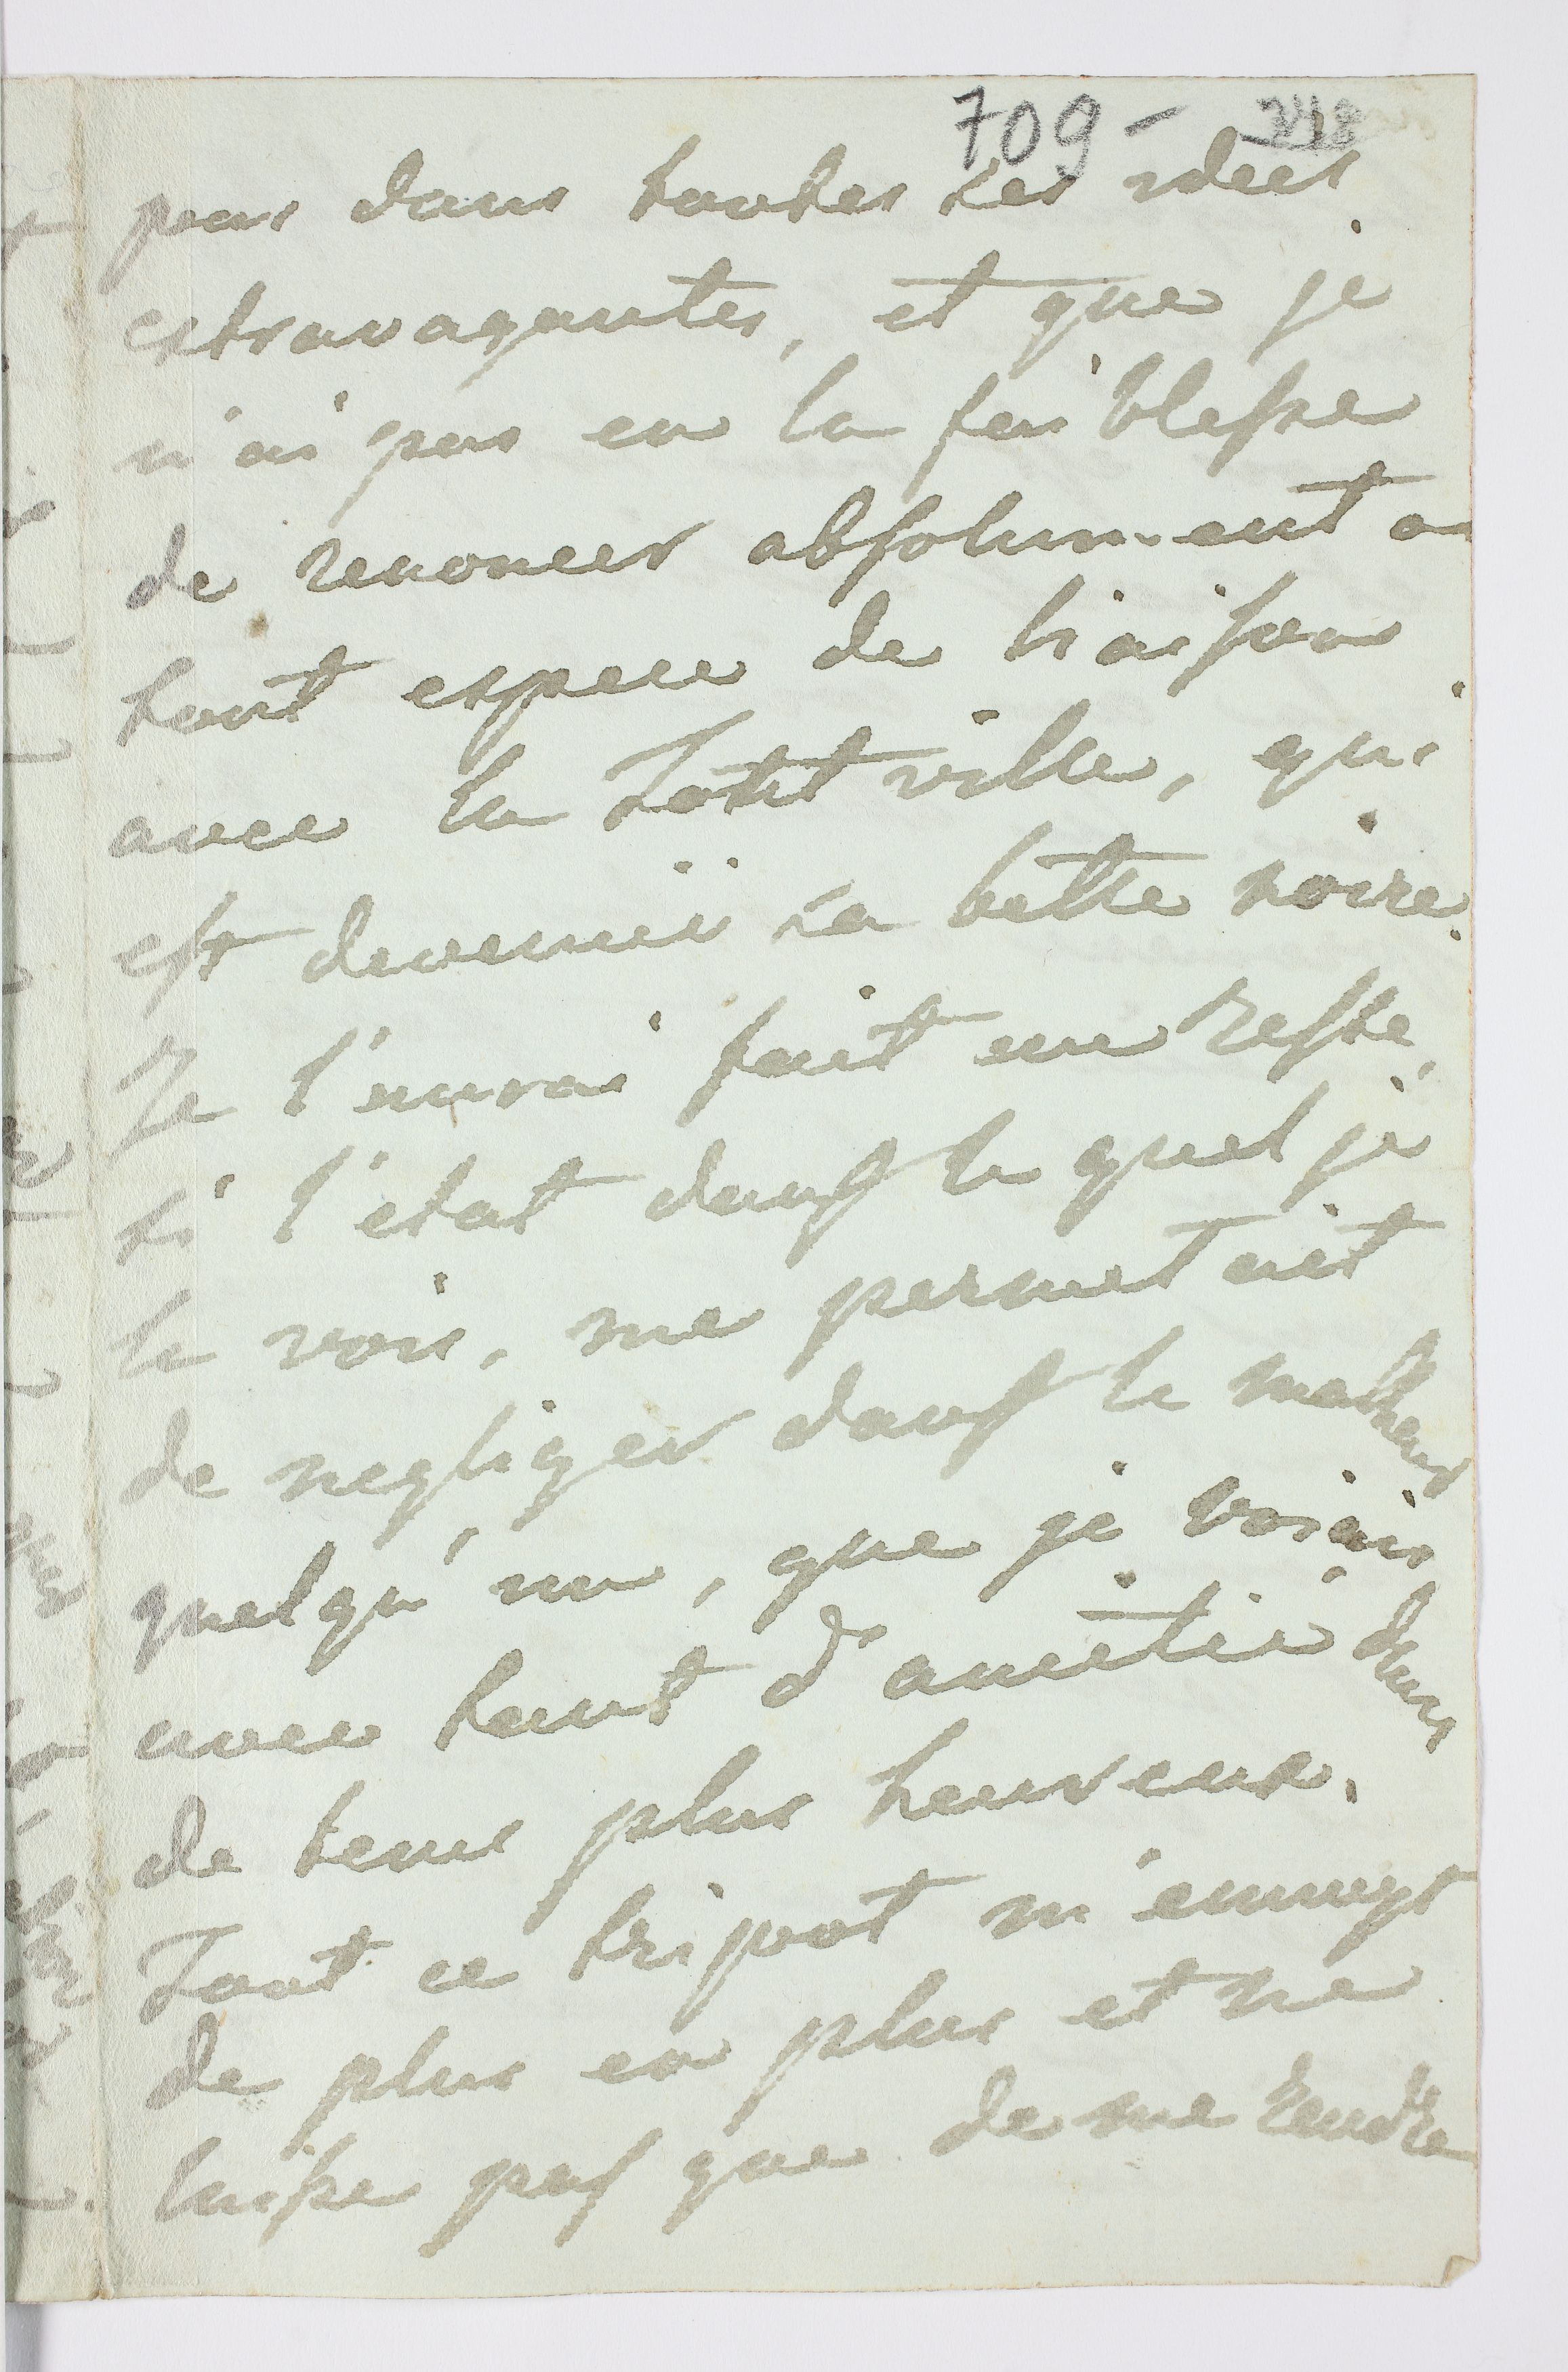 709 - 348
pas dans toutes ses idées
extravagantes, et que je
n'ai pas eu la faiblesse
de renoncer absolument a
tout espece de liaison
avec la Tottville, qui
est devenuë sa bette noire.
Je l'aurai fait au reste,
si l'etat dans le quel je
le vois, me permettoit
de negliger dans le malheur
quelqu'un, que je voiais
avec tant d'amitié dans
de tems plus heureux.
Tout ce tripot m'ennuyt
de plus en plus et ne
laisse pas que de me rendre